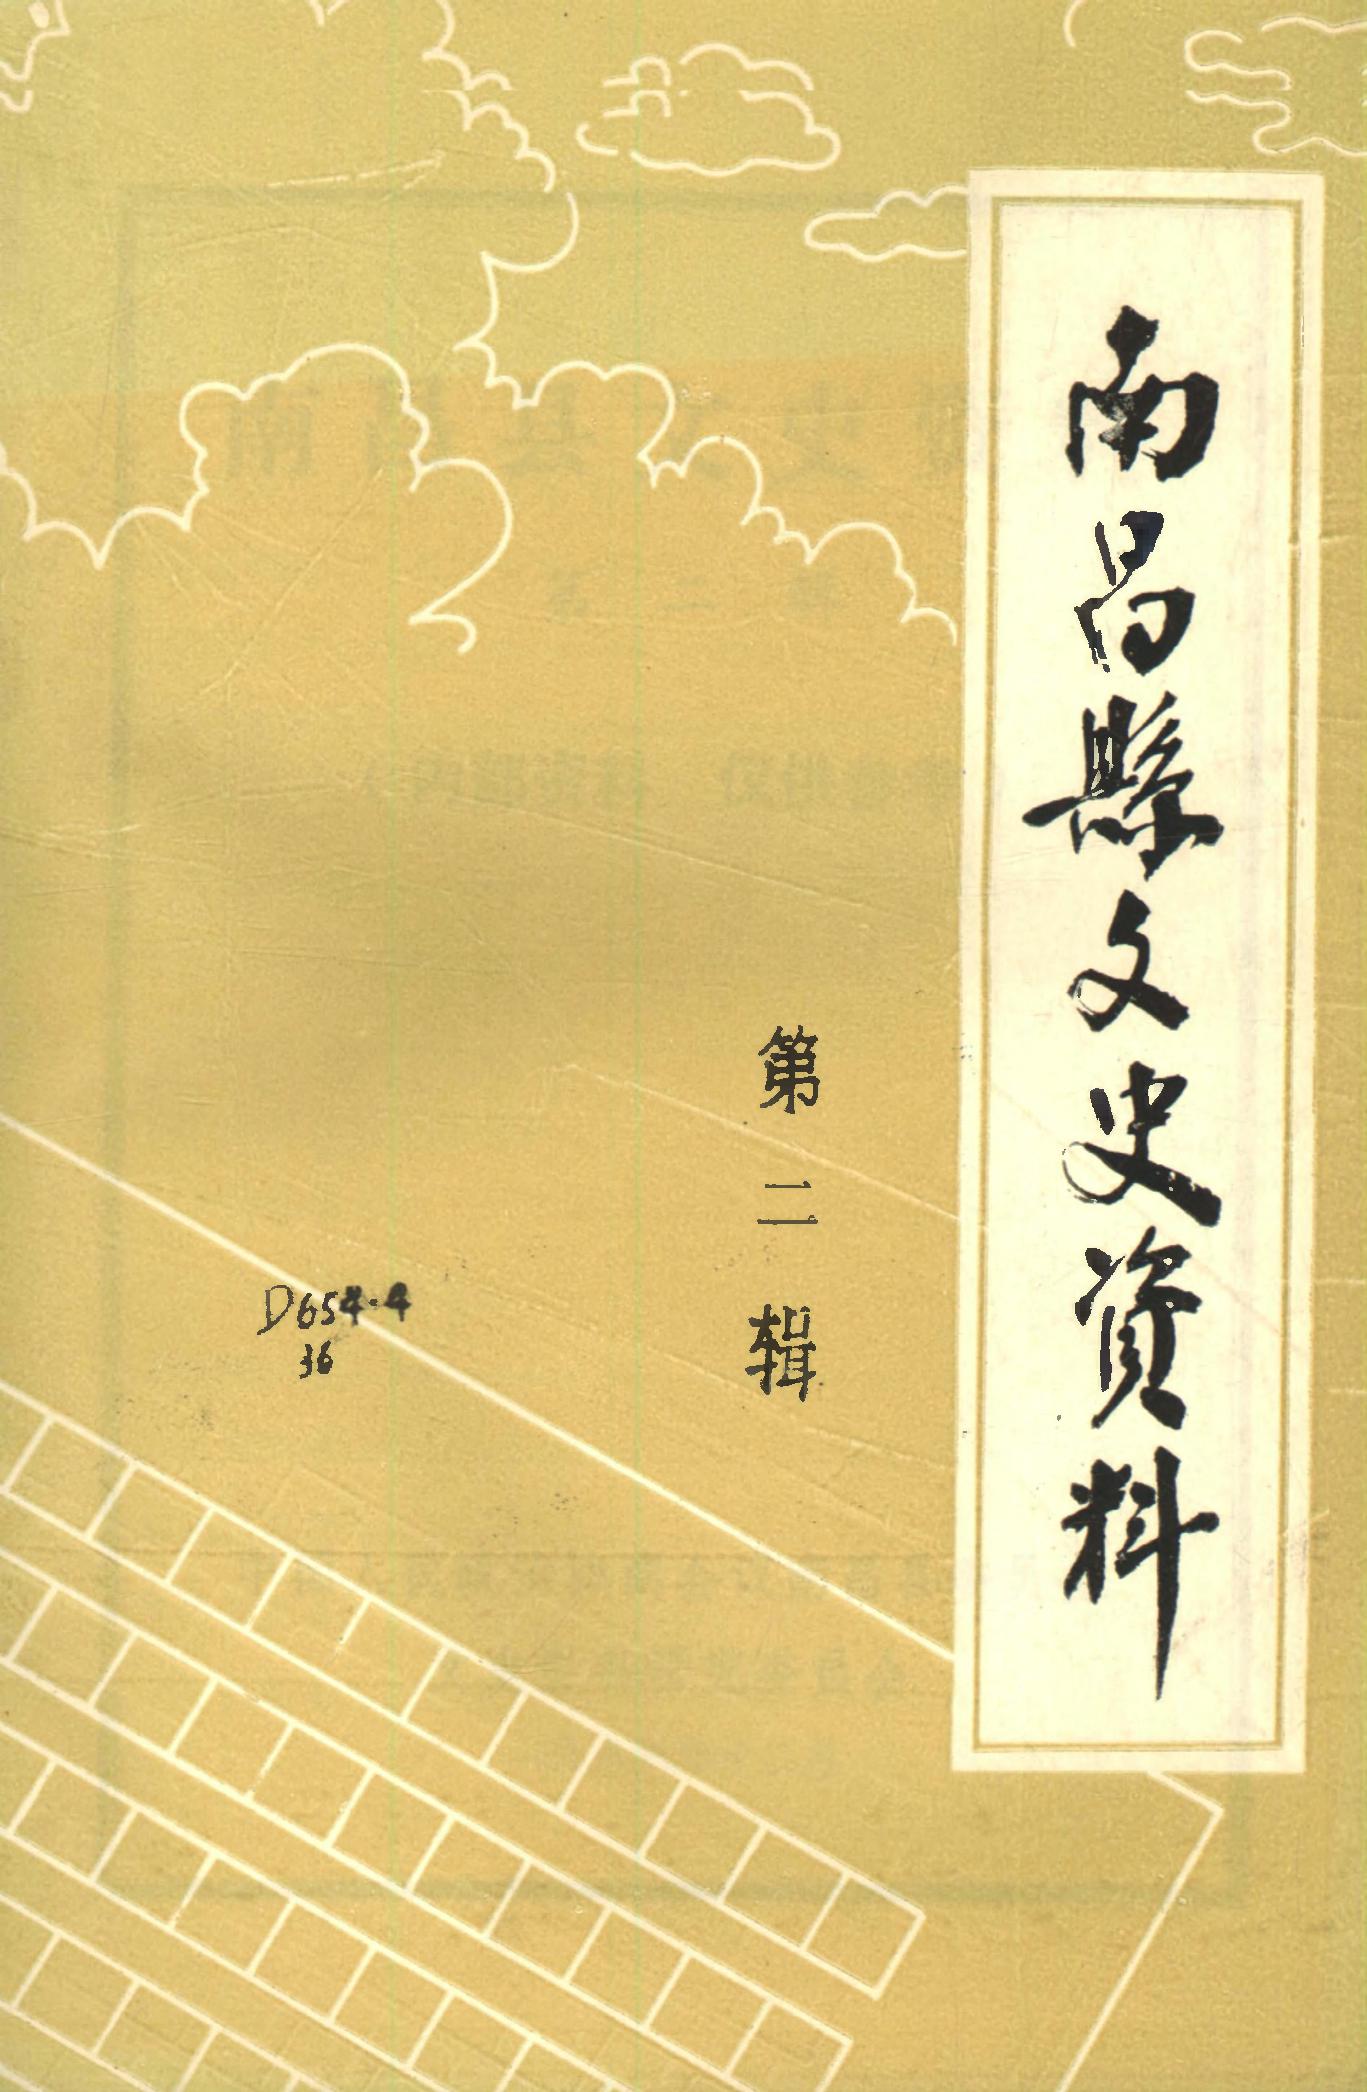 南昌縣文史资料
第二辑
D654.4
36